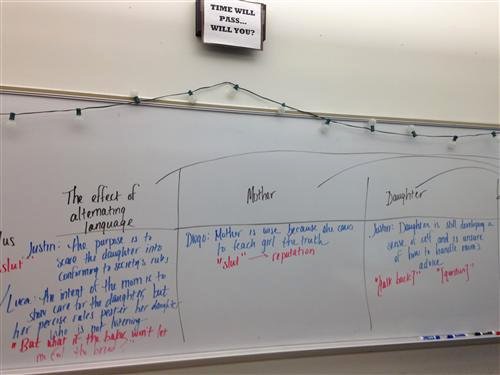 TIME WILL
PASS...
WILL YOU?
The effect of
alternating
language
Mother
Daughter
Justin: The purpose is to
scare the daughter into
confirming to society's rules
"slut"
Luca: An intent of the mom is to
show care for the daughter, but
her percise rules pester her daughter
who is not listening.
"But what if the baker won't let
me feel the bread?"
Diego: Mother is wise because she cares
to teach girl the truth
"slut" → reputation
Justin: Daughter is still developing a
sense of self and is unsure
of how to handle mom's
advice
"[talk back]" "[question]"